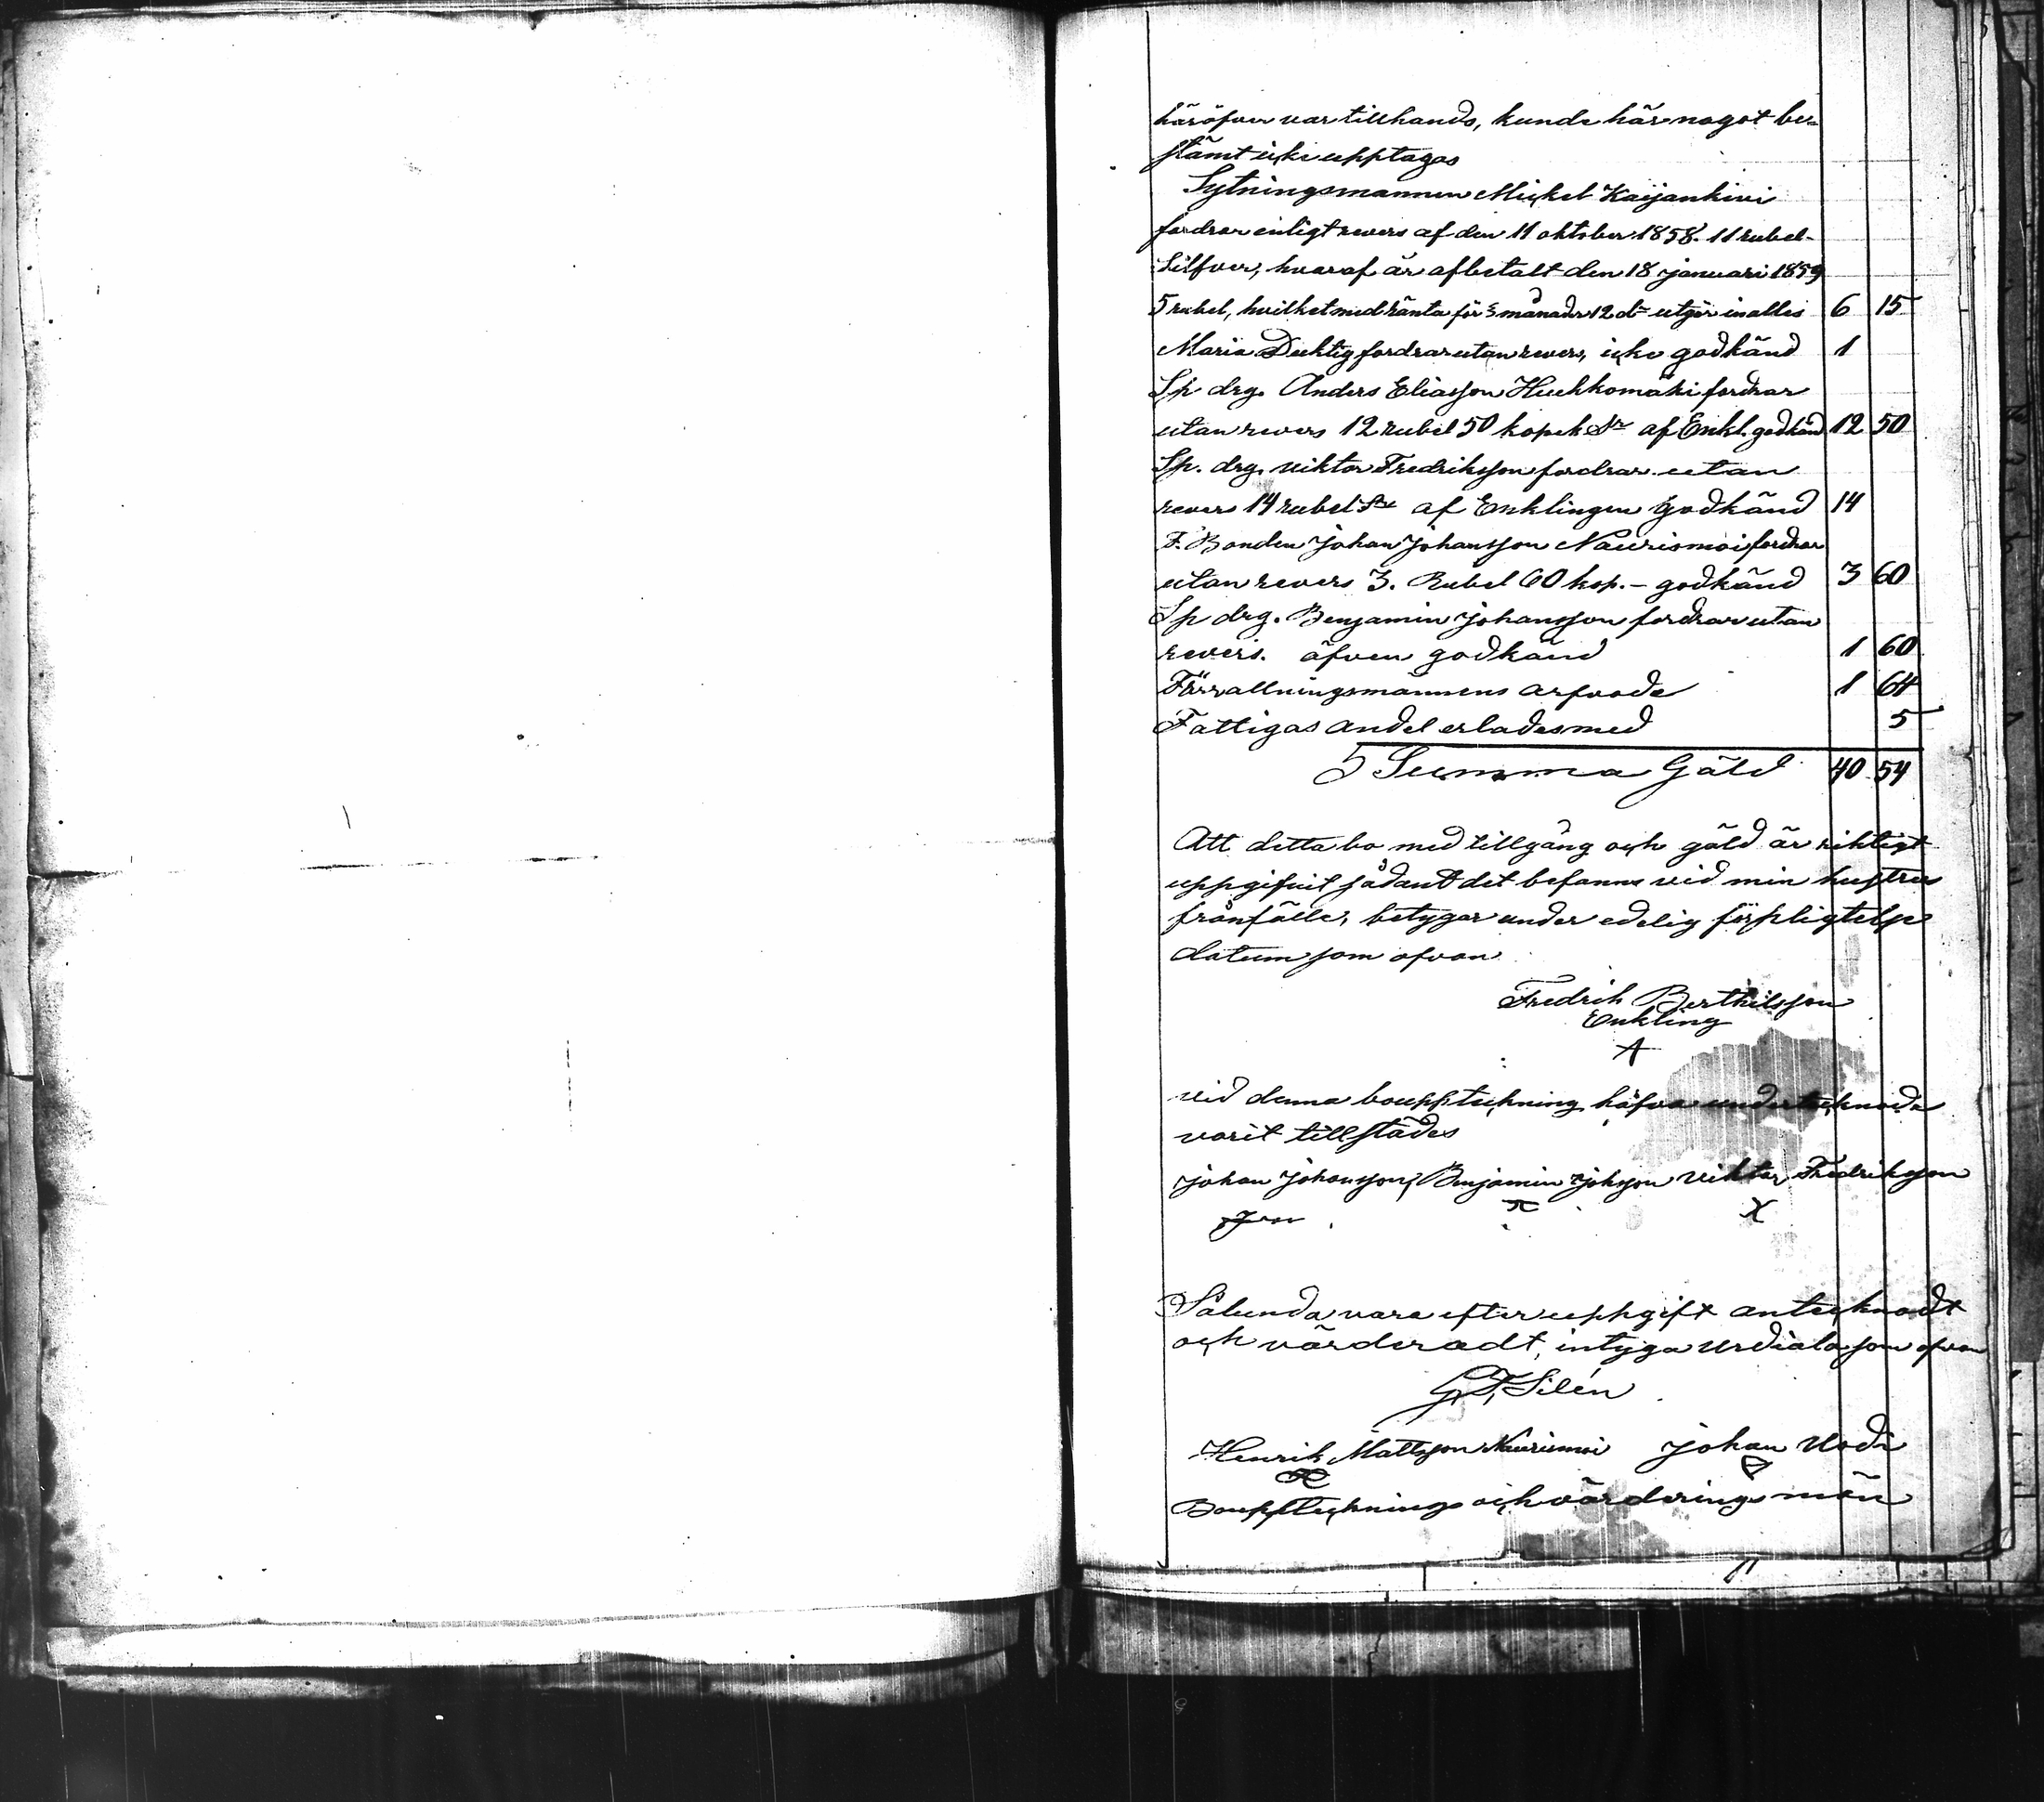 häröfver var tillhands, kunde här något be-
stämt icke upptagas
Sytningsmannen Mickel Kaijankivi
fordrar enligt revers af den 11 oktober 1858. 11 rubel
Silfver, hvaraf är afbetalt den 18 januari 1859
5 rubel, hvilket med ränta för 5 månader 12 d= utgör inalles 6 15
Maria Duktig fordrar utan revers, icke godkänd 1
Sp drg. Anders Eliasson Huhkomäki fordrar
utan revers 12 rubel 50 kopek Sr af Enkl. godkänd 12 50
Sp. drg. Viktor Fredriksson fordrar utan
revers 14 rubel Sr af Enklingen godkänd 14
F. Bonden Johan Johansson Naurismoi fordrar
utan revers 3. Rubel 60 kop. – godkänd 3 60
Sp drg. Benjamin Johansson fordrar utan
revers. äfven godkänd 1 60
Förrattningsmännens arfvode 1 64
Fattigas andel erlades med 5
Summa Gäld 40 54
Att detta bo med tillgång och gäld är riktigt
uppgifvit sådant det befanns vid min hustrus
frånfälle, betygar under edelig förpligtelse
datum som ofvan
Fredrik Berthilsson
Enkling
vid denna bouppteckning häfva undertecknade
varit tillstädes
Johan Johansson, Benjamin Johsson Viktor Fredriksson
X
Sålunda vara efter uppgift antecknadt
och värderadt, intyga Urdiala som ofvan
Silén
Henrik Mattsson Naurismoi Johan
Bouppteknings och värderings män